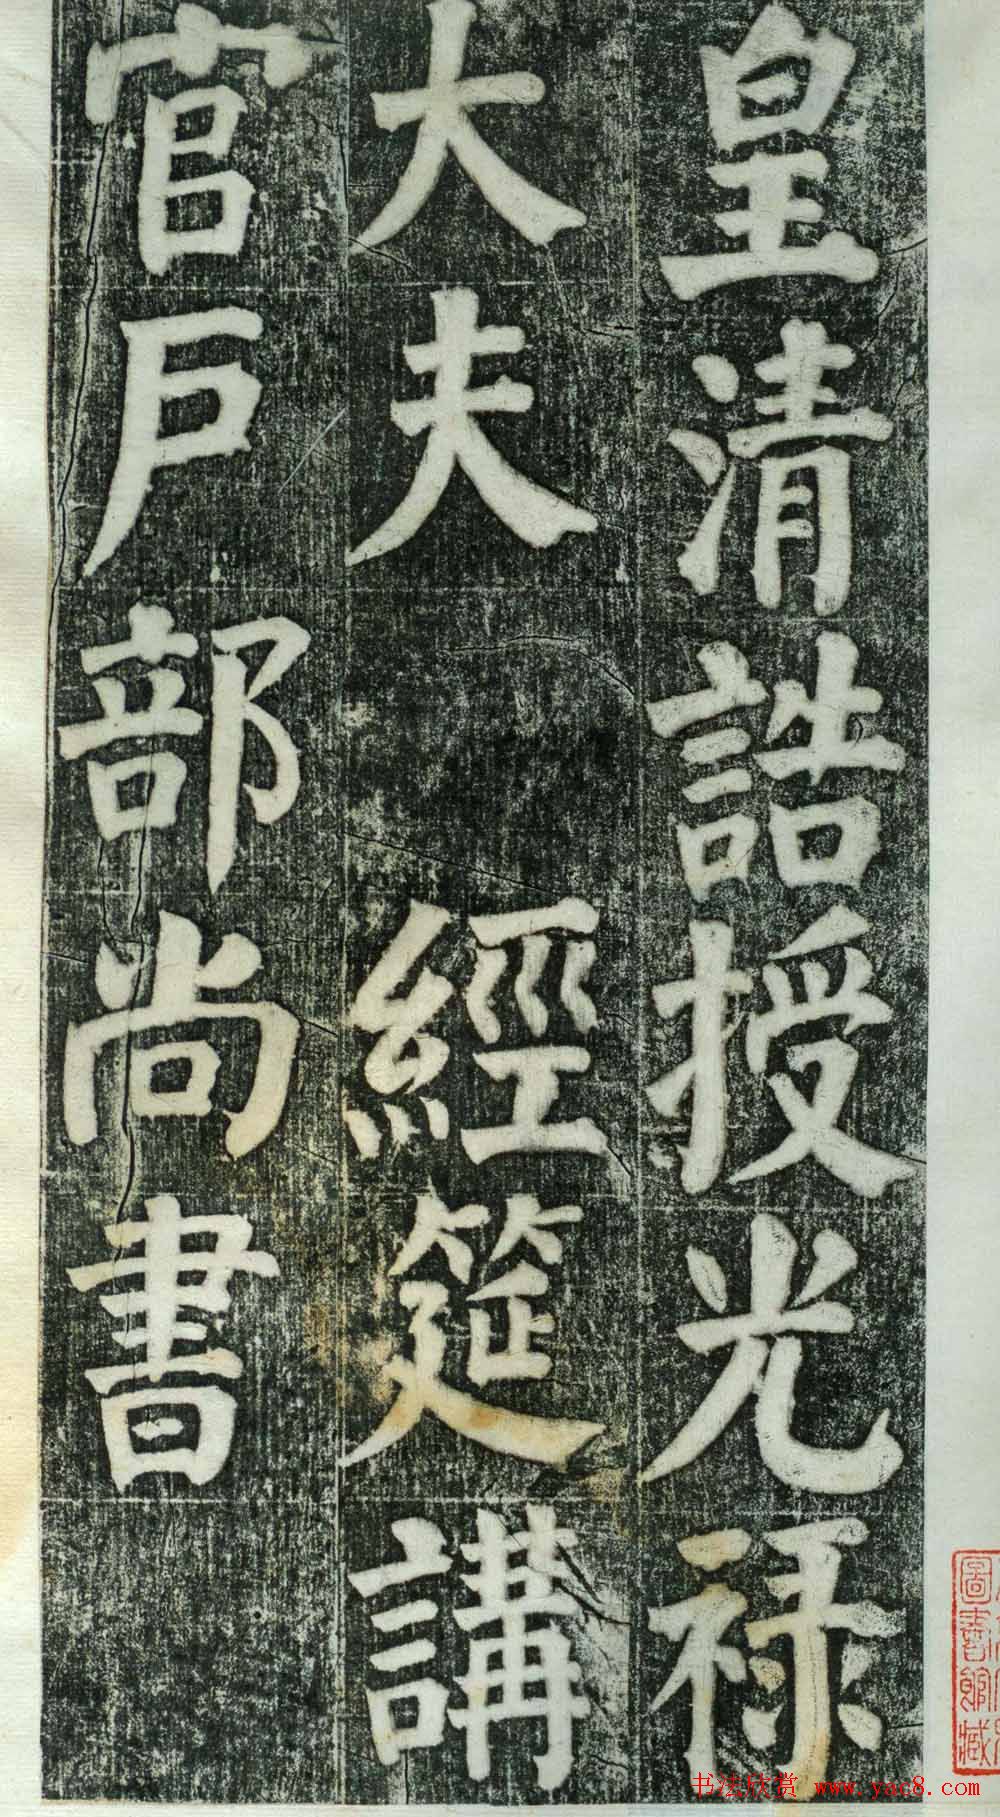 皇清誥授光祿
大夫 經筵講
官戶部尚書
圖書館藏
书法欣赏 www.yac8.com